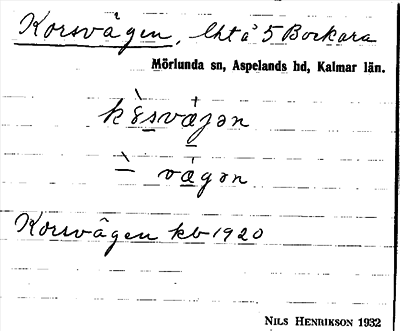 Korsvägen, lht å 5 Bockara
Mörlunda sn, Aspelands hd, Kalmar län.
vägən
Korsvägen kb 1920
NILS HENRIKSON 1932